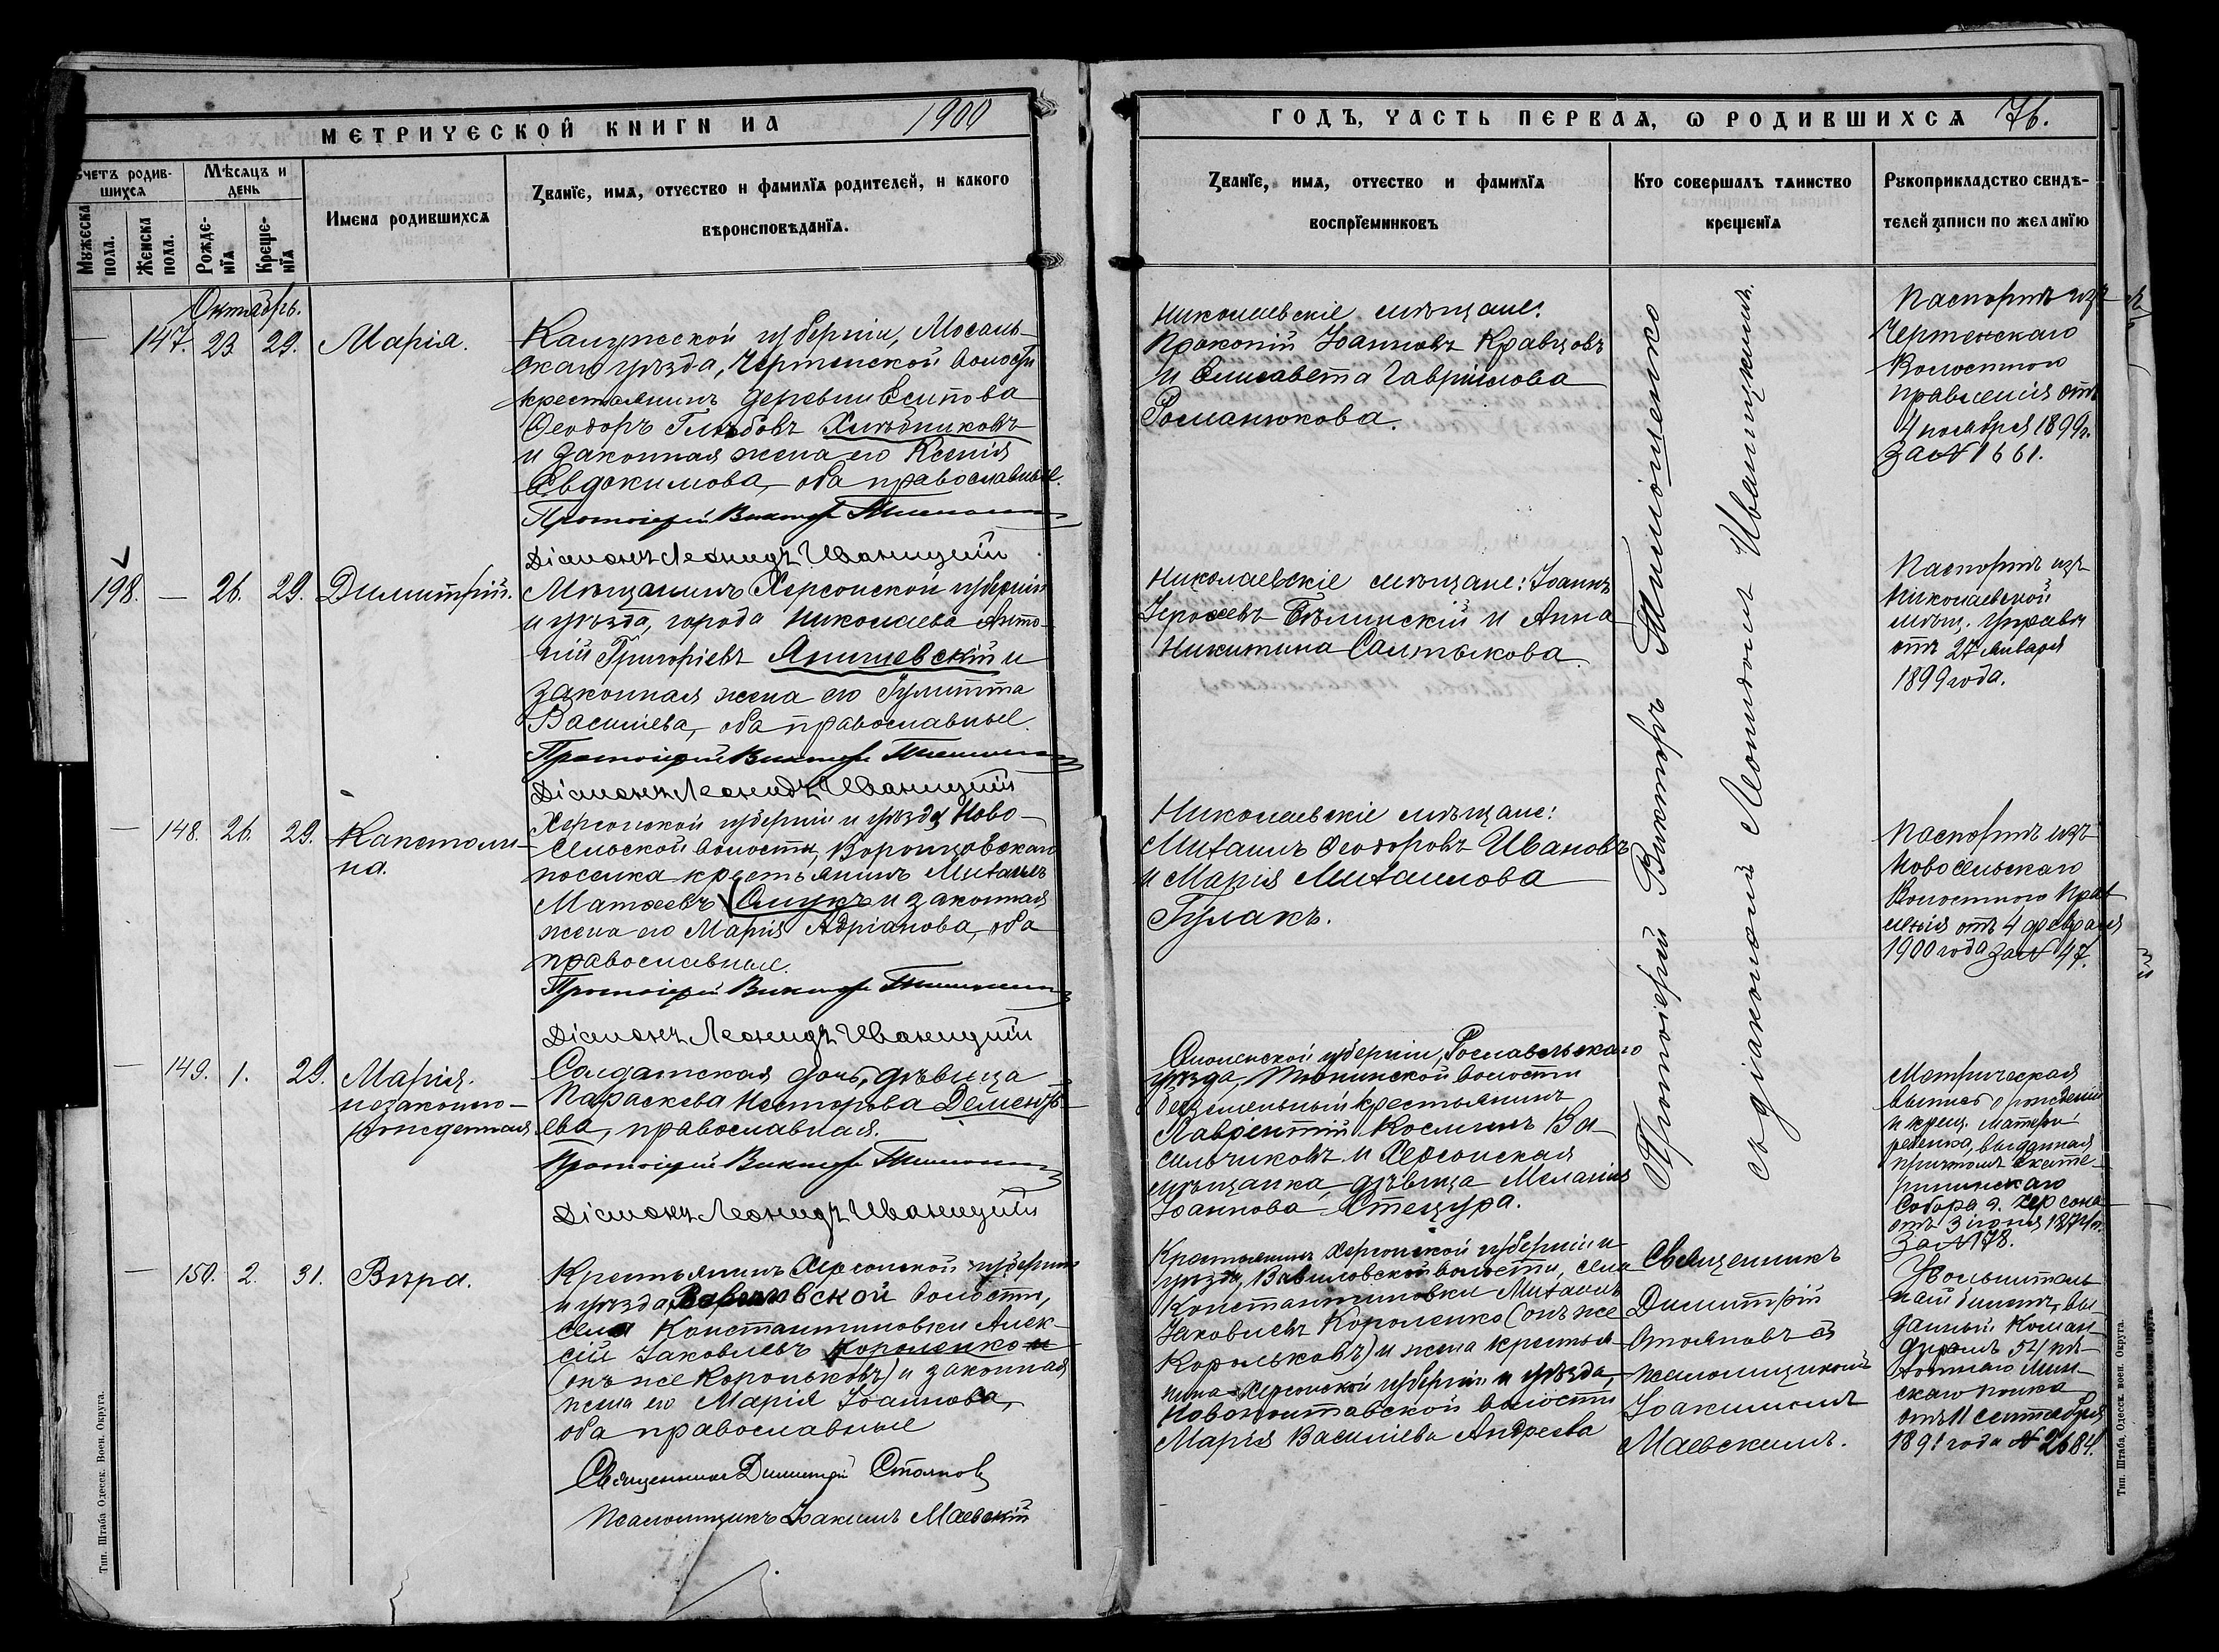 МЕТРИЧЕСКОЙ КНИГИ НА 1900
Счетъ родив-
шихся
Мѣсяцъ и
день
Мужеска
пола.
Женска
пола.
Рожде-
нїя
Креще-
нїя
Имена родившихся
Званїе, имя, отчество и фамилїя родителей, и какого
вѣроисповѣданїя.
Октябрь.
— 147. 23. 29. Марія.
Калужской губерніи, Мосаль-
скаго уѣзда, Чертенской волости
крестьянинъ деревни Есипова
Ѳеодоръ Глѣбовъ Хлѣбниковъ
и законная жена его Ксенія
Евдокимова, оба православные.
Протоіерей Викторъ
Діаконъ Леонидъ Иваницкій
198. — 26. 29. Димитрій.
Мѣщанинъ Херсонской губерніи
и уѣзда, города Николаева Анто-
ній Григоріевъ Янишевскій и
законная жена его Іулитта
Васильева, оба православные.
Протоіерей Викторъ
Діаконъ Леонидъ Иваницкій
— 148. 26. 29. Капетоли-
на.
Херсонской губерніи и уѣзда Ново-
сельской волости, Воронцовскаго
поселка крестьянинъ Михаилъ
Матѳеевъ и законная
жена его Марія Адріанова, оба
православные.
Протоіерей Викторъ
Діаконъ Леонидъ Иваницкій
— 149. 1. 29. Марія.
незаконно-
рожденная
Солдатская дочь, дѣвица
Параскева Несторова Дементь-
ева, православная.
Протоіерей Викторъ
Діаконъ Леонидъ Иваницкій
— 150. 2. 31. Вѣра.
Крестьянинъ Херсонской губерніи
и уѣзда волости,
села Константиновки Алек-
сій Іаковлевъ Короленко
(онъ же Корольковъ) и законная
жена его Марія Іоаннова,
оба православные
Священникъ Димитрій Стояновъ
Псаломщикъ Іоакимъ Маевскій
Тип. Штаба Одесск. Воен. Округа.
ГОДЪ, ЧАСТЬ ПЕРВАЯ, Ѡ РОДИВШИХСЯ 76.
Званїе, имя, отчество и фамилїя
воспрїемниковъ
Кто совершалъ таинство
крещенїя
Рукоприкладство свидѣ-
телей записи по желанїю
Николаевскіе мѣщане:
Прокопій Іоанновъ Кравцовъ
и Елисавета Гавріилова
Романюкова.
Николаевскіе мѣщане: Іоаннъ
Бѣлинскій и Анна
Никитина Салтыкова.
Николаевскіе мѣщане:
Михаилъ Ѳеодоровъ Ивановъ
и Марія Михаилова
Гулакъ.
Смоленской губерніи, Рославльскаго
уѣзда, волости
безземельный крестьянинъ
Лаврентій Косминъ Ва-
сильчиковъ и Херсонская
мѣщанка, дѣвица Меланія
Іоаннова Стецура.
Крестьянинъ Херсонской губерніи и
уѣзда, Вавиловской волости, села
Константиновки Михаилъ
Іаковлевъ Короленко (онъ же
Корольковъ) и жена крестья-
нина Херсонской губерніи и уѣзда
Новополтавской волости
Марія Васильева Андреева
Протоіерей Викторъ Тимошенко
съ діакономъ Леонидомъ Иваницкимъ.
Священникъ
Димитрій
Стояновъ съ
псаломщикомъ
Іоакимомъ
Маевскимъ.
Паспортъ изъ
Чертенскаго
Волостного
правленія отъ
4 ноября 1899 г.
за № 1661.
Паспортъ изъ
Николаевской
мѣщ. управы
отъ 27 января
1899 года.
Паспортъ изъ
Новосельскаго
Волостного Прав-
ленія отъ 4 февраля
1900 года за № 47.
Метрическая
выпись о рожденіи
и крещ. матери
ребенка, выданная
причтомъ Екате-
рининскаго
Собора г. Херсона
отъ 3 іюня 187
за № 178.
Увольнитель-
ный билетъ, вы-
данный Коман-
диромъ 54 пѣ-
хотнаго Мин-
скаго полка
отъ 11 сентября
1891 года № 2684.
Тип. Штаба Одесск. воен. Округа.